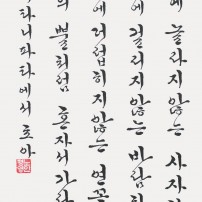 에 놀라지 않는 사자
에 걸리지 않는 바람
에 더럽히지 않는 연꽃
의 뿔처럼 혼자서 가라
타니파타에서 효아